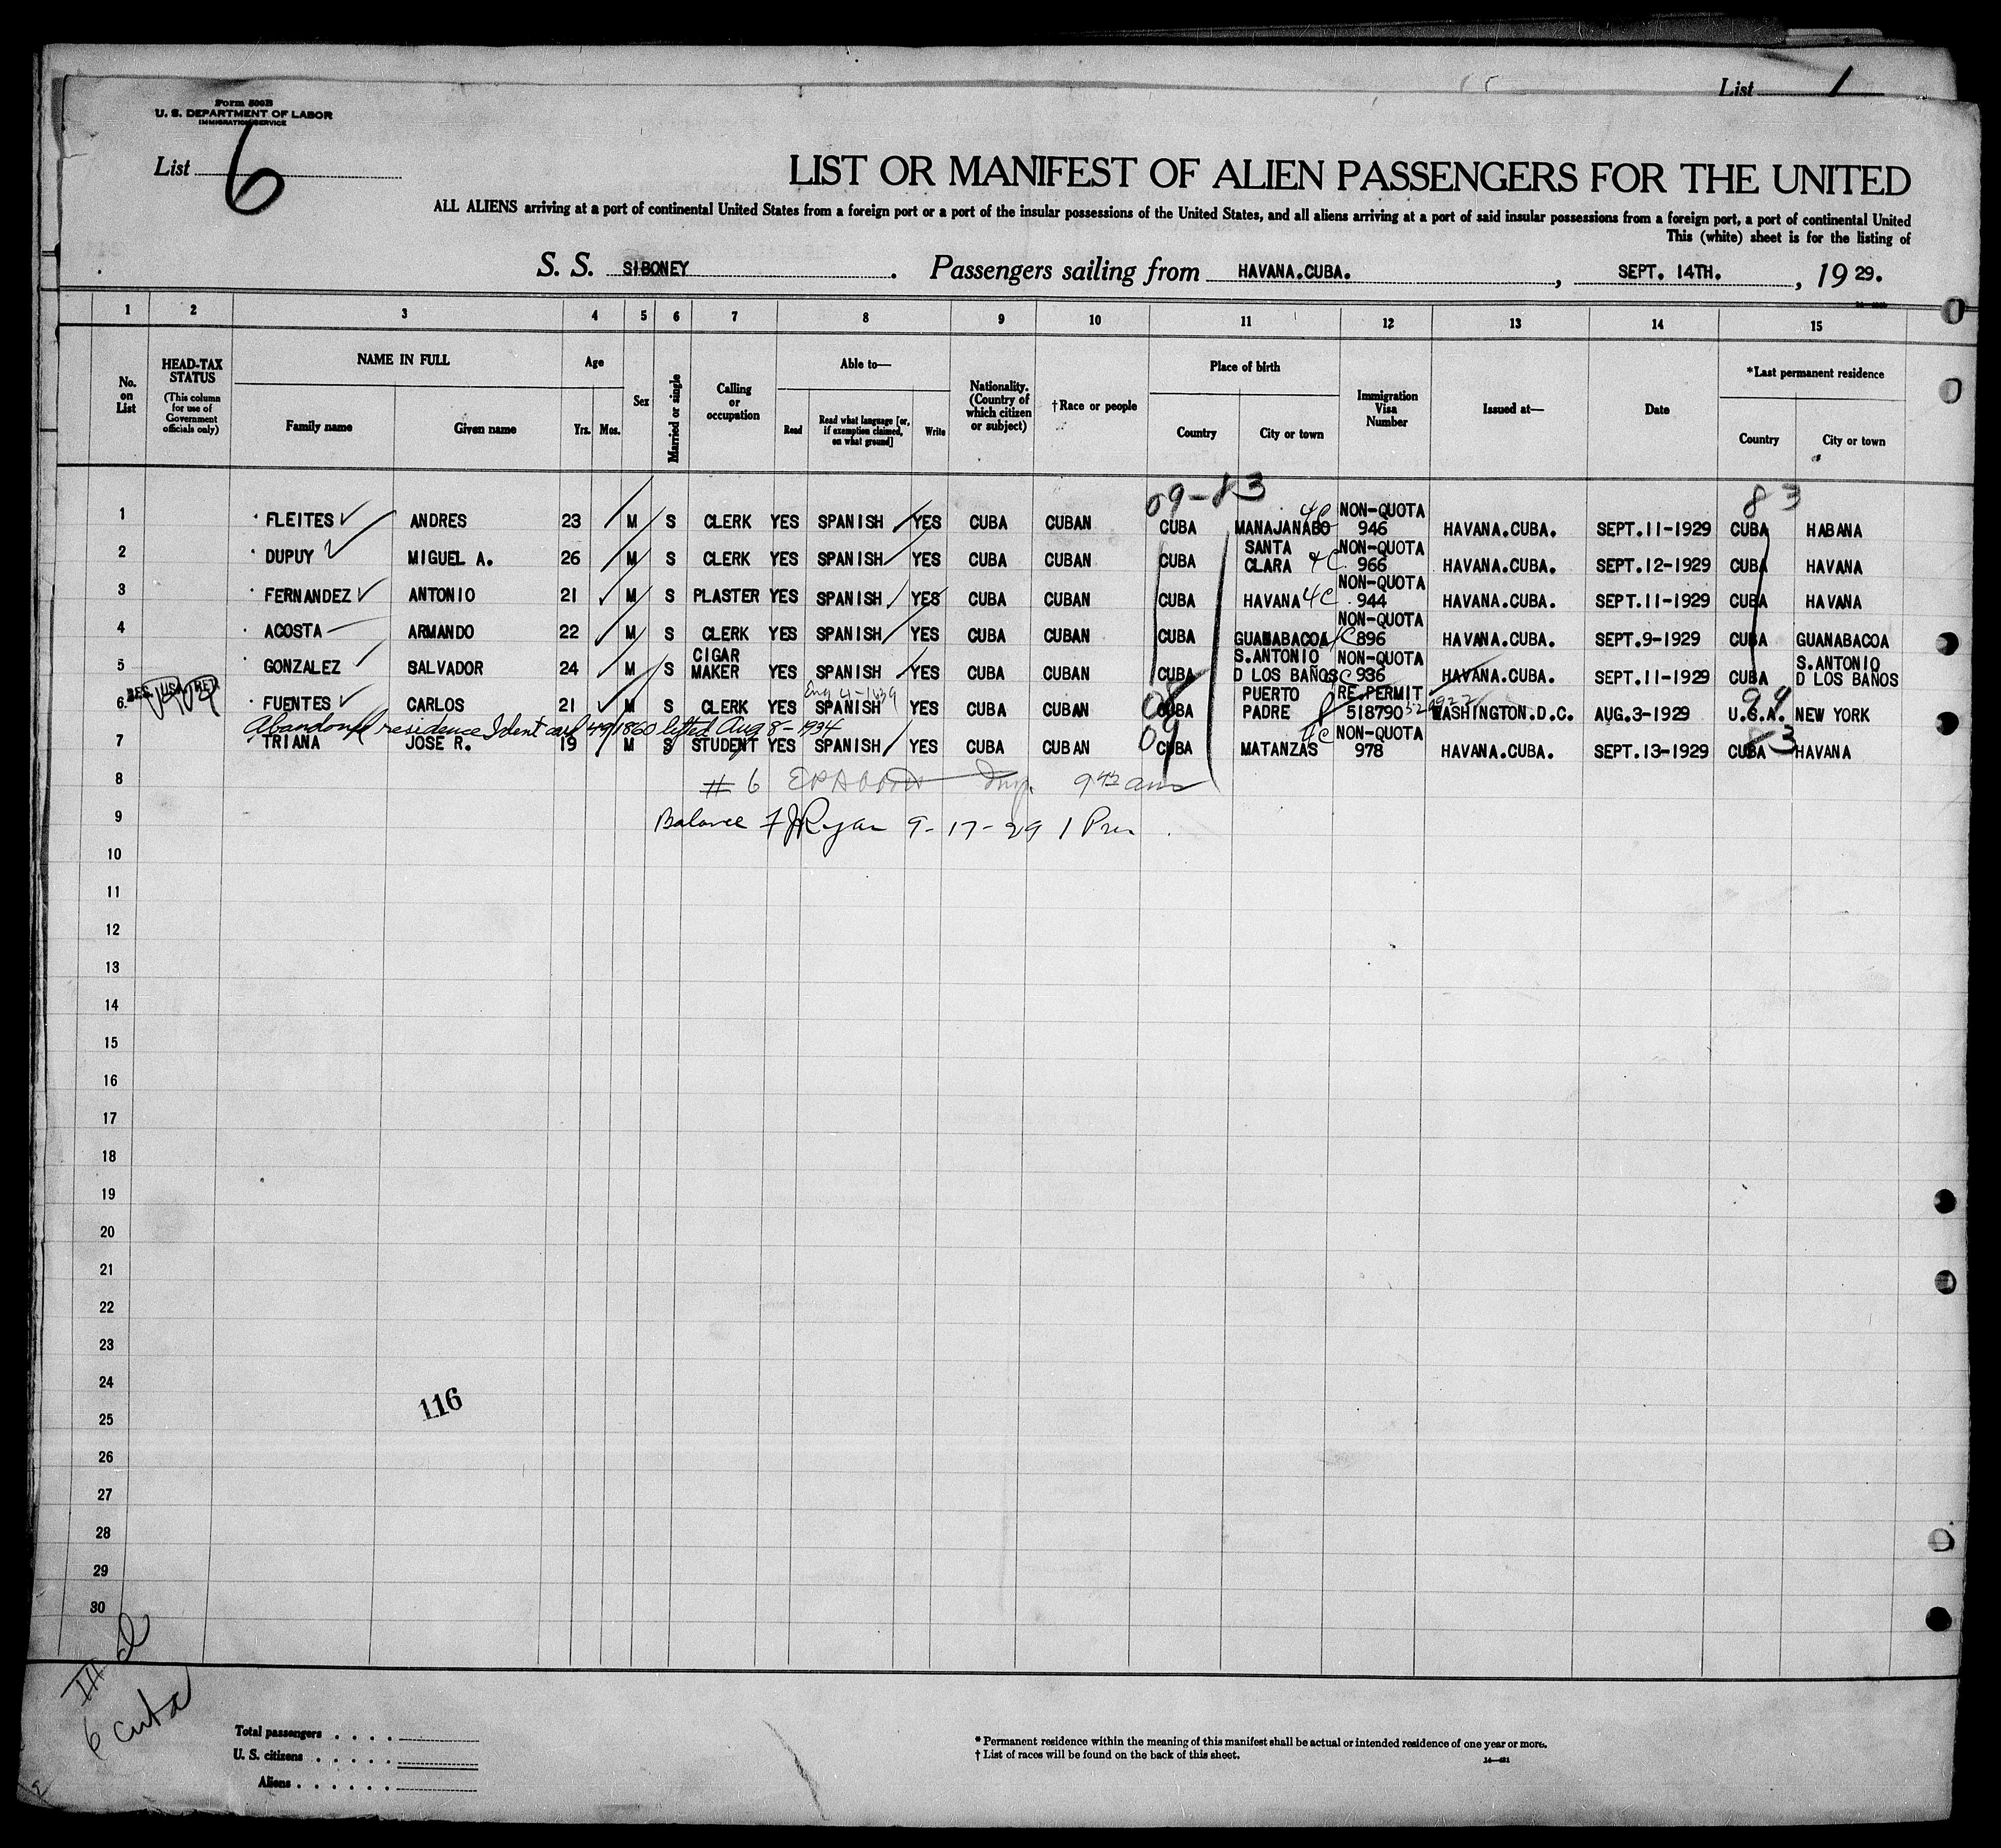 List 1
Form 500B
U. S. DEPARTMENT OF LABOR
IMMIGRATION SERVICE
List 6
LIST OR MANIFEST OF ALIEN PASSENGERS FOR THE UNITED
ALL ALIENS arriving at a port of continental United States from a foreign port or a port of the insular possessions of the United States, and all aliens arriving at a port of said insular possessions from a foreign port, a port of continental United
This (white) sheet is for the listing of
S. S. SIBONEY. Passengers sailing from HAVANA.CUBA. , SEPT. 14TH. , 19 29.
1 2 3 4 5 6 7 8 9 10 11 12 13 14 15
No. on List
HEAD-TAX STATUS
(This column for use of Government officials only)
NAME IN FULL
Family name
Given name
Age
Yrs. Mos.
Sex
Married or single
Calling or occupation
Able to—
Read
Read what language [or, if exemption claimed, on what ground]
Write
Nationality. (Country of which citizen or subject)
†Race or people
Place of birth
Country
City or town
Immigration Visa Number
Issued at—
Date
*Last permanent residence
Country
City or town
09-83 83
1 FLEITES ANDRES 23 M S CLERK YES SPANISH YES CUBA CUBAN CUBA MANAJANABO 4C NON-QUOTA 946 HAVANA.CUBA. SEPT.11-1929 CUBA HABANA
2 DUPUY MIGUEL A. 26 M S CLERK YES SPANISH YES CUBA CUBAN CUBA SANTA CLARA 4C NON-QUOTA 966 HAVANA.CUBA. SEPT.12-1929 CUBA HAVANA
3 FERNANDEZ ANTONIO 21 M S PLASTER YES SPANISH YES CUBA CUBAN CUBA HAVANA 4C NON-QUOTA 944 HAVANA.CUBA. SEPT.11-1929 CUBA HAVANA
4 ACOSTA ARMANDO 22 M S CLERK YES SPANISH YES CUBA CUBAN CUBA GUANABACOA 4C NON-QUOTA 896 HAVANA.CUBA. SEPT.9-1929 CUBA GUANABACOA
5 GONZALEZ SALVADOR 24 M S CIGAR MAKER YES SPANISH YES CUBA CUBAN CUBA S.ANTONIO D LOS BAÑOS NON-QUOTA 936 HAVANA.CUBA. SEPT.11-1929 CUBA S.ANTONIO D LOS BAÑOS
6 FUENTES CARLOS 21 M S CLERK YES SPANISH YES CUBA CUBAN 08 CUBA PUERTO PADRE RE PERMIT 518790 WASHINGTON.D.C. AUG.3-1929 99 U.S.A. NEW YORK
Abandoned residence Ident card 491860 lifted Aug 8-1934
7 TRIANA JOSE R. 19 M S STUDENT YES SPANISH YES CUBA CUBAN 09 CUBA MATANZAS 4C NON-QUOTA 978 HAVANA.CUBA. SEPT.13-1929 83 CUBA HAVANA
8 # 6 Insp. 9 42 am
9 Balance F J Ryan 9-17-29
10
11
12
13
14
15
16
17
18
19
20
21
22
23
24
116
25
26
27
28
29
30
6 cuba
Total passengers
U. S. citizens
Aliens
* Permanent residence within the meaning of this manifest shall be actual or intended residence of one year or more.
† List of races will be found on the back of this sheet.